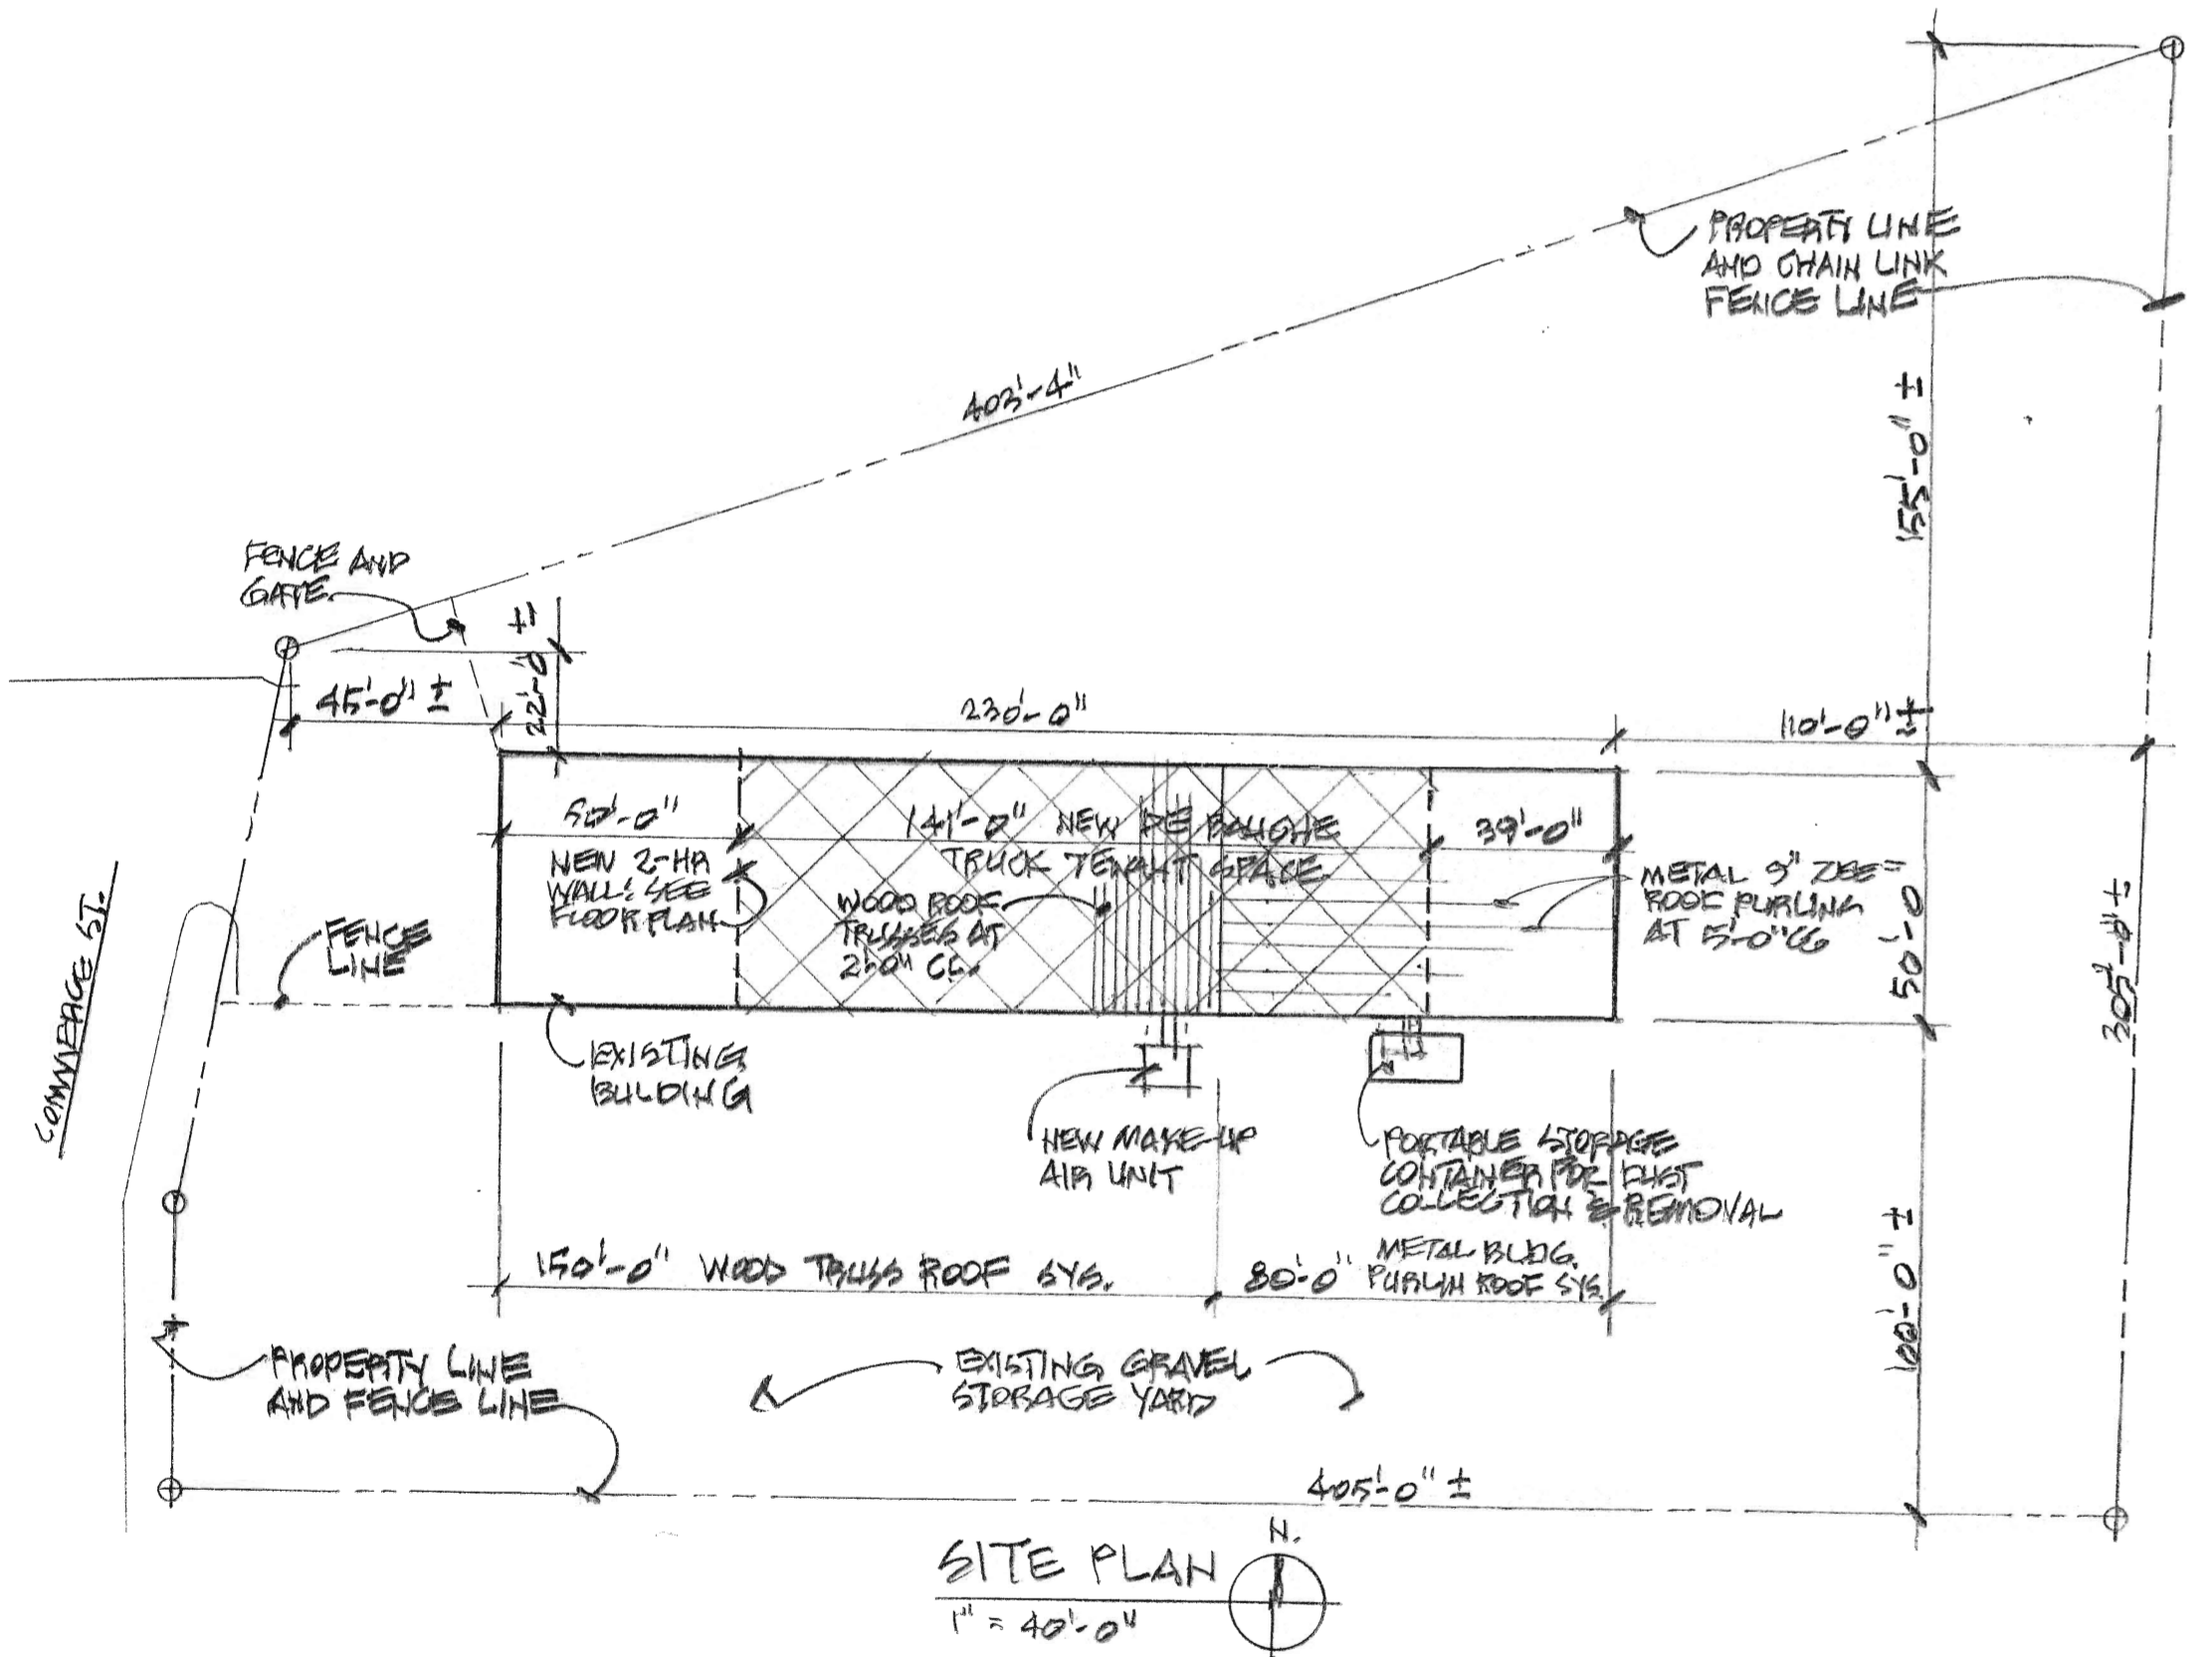 PROPERTY LINE
AND CHAIN LINK
FENCE LINE
403'-4"
155'-0" ±
FENCE AND
GATE
22'-0" ±
45'-0" ±
230'-0"
110'-0" ±
50'-0"
141'-0" NEW DE BAUCHE
TRUCK TENANT SPACE
39'-0"
NEW 2-HR
WALL: SEE
FLOOR PLAN
WOOD ROOF
TRUSSES AT
2'-0" CC.
METAL 9" ZEE
ROOF PURLINS
AT 5'-0" CC
50'-0
305'-0" ±
FENCE
LINE
COMMERCE ST.
EXISTING
BUILDING
NEW MAKE-UP
AIR UNIT
PORTABLE STORAGE
CONTAINER FOR DUST
COLLECTION & REMOVAL
150'-0" WOOD TRUSS ROOF SYS.
80'-0" METAL BLDG.
PURLIN ROOF SYS.
100'-0" ±
PROPERTY LINE
AND FENCE LINE
EXISTING GRAVEL
STORAGE YARD
405'-0" ±
SITE PLAN
N.
1" = 40'-0"